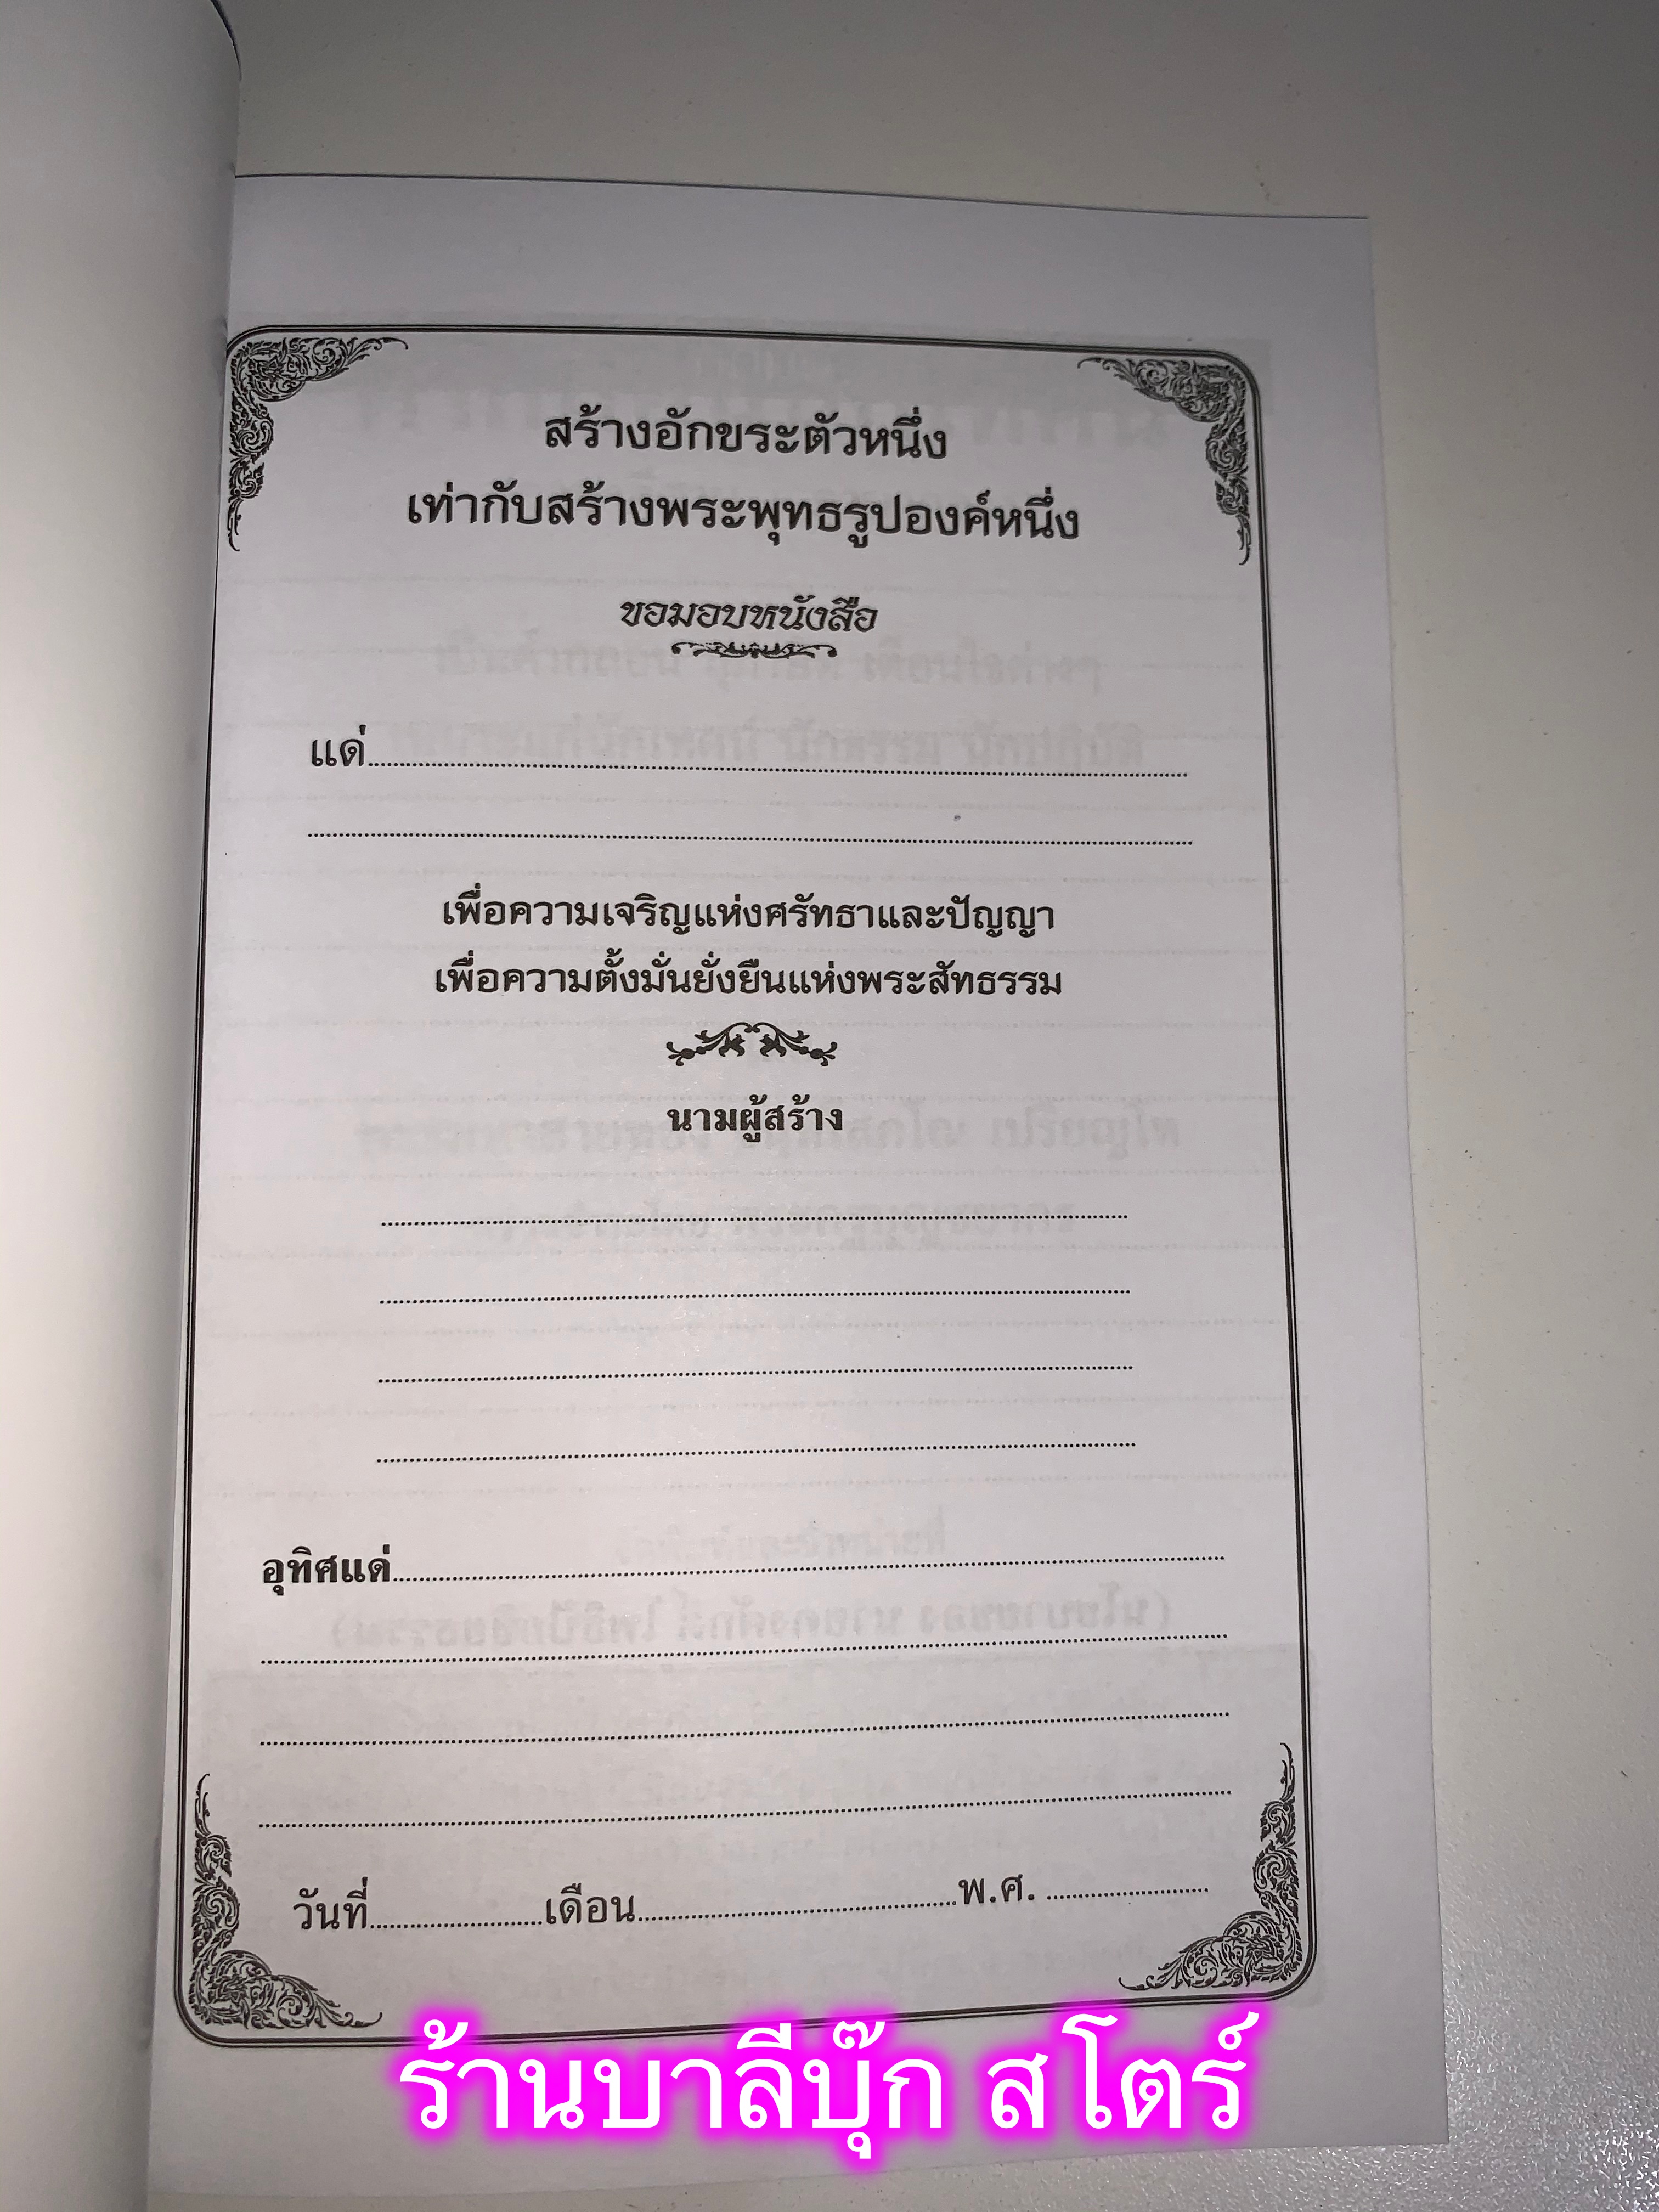 สร้างอักขระตัวหนึ่ง
เท่ากับสร้างพระพุทธรูปองค์หนึ่ง
ขอมอบหนังสือ
แด่
เพื่อความเจริญแห่งศรัทธาและปัญญา
เพื่อความตั้งมั่นยั่งยืนแห่งพระสัทธรรม
นามผู้สร้าง
อุทิศแด่
วันที่ เดือน พ.ศ.
ร้านบาลีบุ๊ก สโตร์